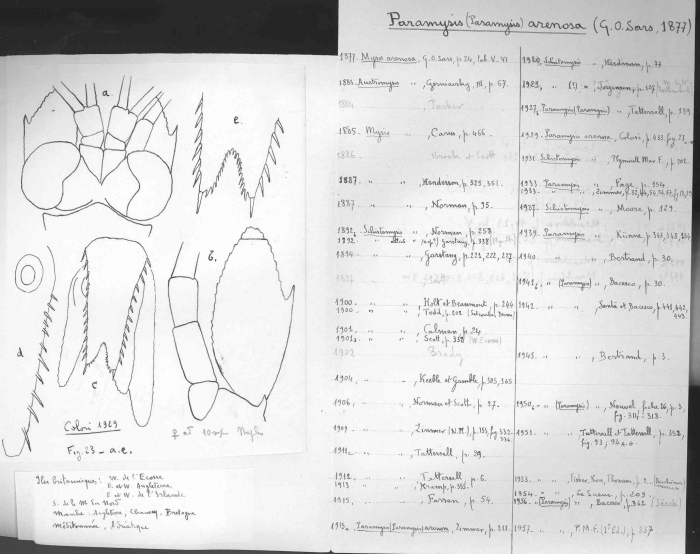 Paramysis (Paramysis) arenosa (G.O. Sars, 1877)
1877. Mysis arenosa, G.O. Sars, p. 24, tab. V-VI
1883 Austromysis " , Czerniavsky, III, p. 67.
1884
1885. Mysis " , Carus, p. 466.
1886
1887. " " , Henderson, p.
1887 " " , Norman, p. 95.
1892. Schistomysis " , Norman, p. 258
1892. " " Garstang, p. 338
1894 " " , Garstang, p. 221, 222, 227
1900 " " , Holt et Beaumont, p. 244
1900 " " , Todd, p. 202
1901. " " , Calman, p. 24
1901. " " , Scott, p. 352
1902 Brady
1904. " " , Keeble et Gamble, p. 305, 365
1906. " " Norman et Scott, p. 27.
1909. " " , Zimmer (N.M.), p. 155, fig. 332-334
1911. " " , Tattersall, p. 29.
1912 " " , Tattersall p. 6.
1913 " " , Kramp, p.
1915. " " , Farran, p. 54.
1915. Paramysis (Paramysis) arenosa, Zimmer, p.
1920. Schistomysis " , Herdman, p. 37
1923, " (?) " Jorgensen, p. 107
1927. Paramysis (Paramysis) " , Tattersall, p. 189
1929. Paramysis arenosa, Colosi, p. 433, fig. 23, a-e
1931. Schistomysis " , Plymouth Mar. F., p. 202.
1933 Paramysis " , Page, p. 254
1933. " " , Zimmer, p.
1937. Schistomysis " , Moore, p. 129.
1939. Paramysis " , Künne, p. 343, 348, 354
1940 " " , Bertrand, p. 30.
1941. " (Paramysis) " , Bacesco, p. 30.
1942. " " , Santa et Bacesco, p. 441, 442, 443.
1945. " " , Bertrand, p. 3.
1950. " (Paramysis) " , Nouvel, fiche 26, p. 3, fig. 314-318.
1951. " " , Tattersall et Tattersall, p. 358, fig. 93, 94 a-e
1953. " "
1954. " " , Le Sueur, p. 209.
1956. " (Paramysis) " , Bacesco, p. 362
1957. " " , P.M.F. (3e Ed.), p. 257
a.
e.
b.
d
c
Colosi 1929
Fig. 23 - a.e.
♀ ad 10 mm Naples
Iles britanniques : W. de l'Ecosse
E. et W. Angleterre
E et W. de l'Irlande
S. de la M. du Nord
Manche, Angleterre, Chausey, Bretagne
Méditerranée, Adriatique